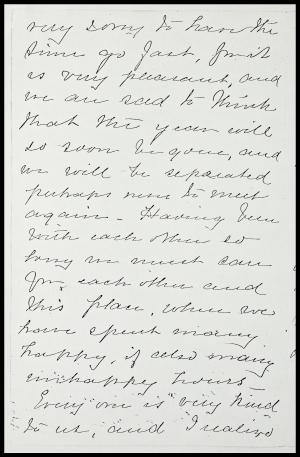 very sorry to have the
time go fast, for it
is very pleasant, and
we are sad to think
that the year will
so soon be gone, and
we will be separated
perhaps never to meet
again - Having been
with each other so
long we must care
for each other and
this place, where we
have spent many
happy, if also many
unhappy hours -
Every one is very kind
to us, and I realize